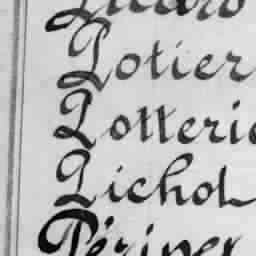 Potier
Potterie
Pichot
Périner